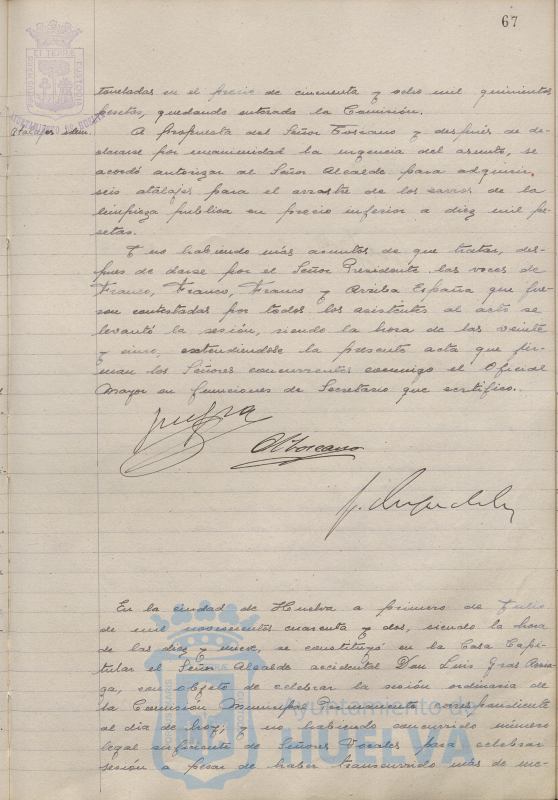 67
toneladas en el precio de cincuenta y ocho mil quinientas
pesetas, quedando enterada la Comisión.
Atalajes idem.
A propuesta del Señor Toscano y después de de-
clararse por unanimidad la urgencia del asunto, se
acordó autorizar al Señor Alcalde para adquirir
seis atalajes para el arrastre de los carros de la
limpieza pública en precio inferior a diez mil pe-
setas.
Y no habiendo más asuntos de que tratar, des-
pués de darse por el Señor Presidente las voces de
Franco, Franco, Franco y Arriba España que fue-
ron contestadas por todos los asistentes al acto se
levantó la sesión, siendo la hora de las veinte
y cinco, extendiéndose la presente acta que fir-
man los Señores concurrentes conmigo el Oficial
Mayor en funciones de Secretario que certifico.
En la ciudad de Huelva a primero de Julio
de mil novecientos cuarenta y dos, siendo la hora
de las diez y nueve, se constituyó en la Casa Capi-
tular el Señor Alcalde accidental Don Luis Gras
con objeto de celebrar la sesión ordinaria de
la Comisión Municipal Permanente correspondiente
al día de hoy, y no habiendo concurrido número
legal suficiente de Señores Vocales para celebrar
sesión a pesar de haber transcurrido más de me-
Ayuntamiento de
HUELVA